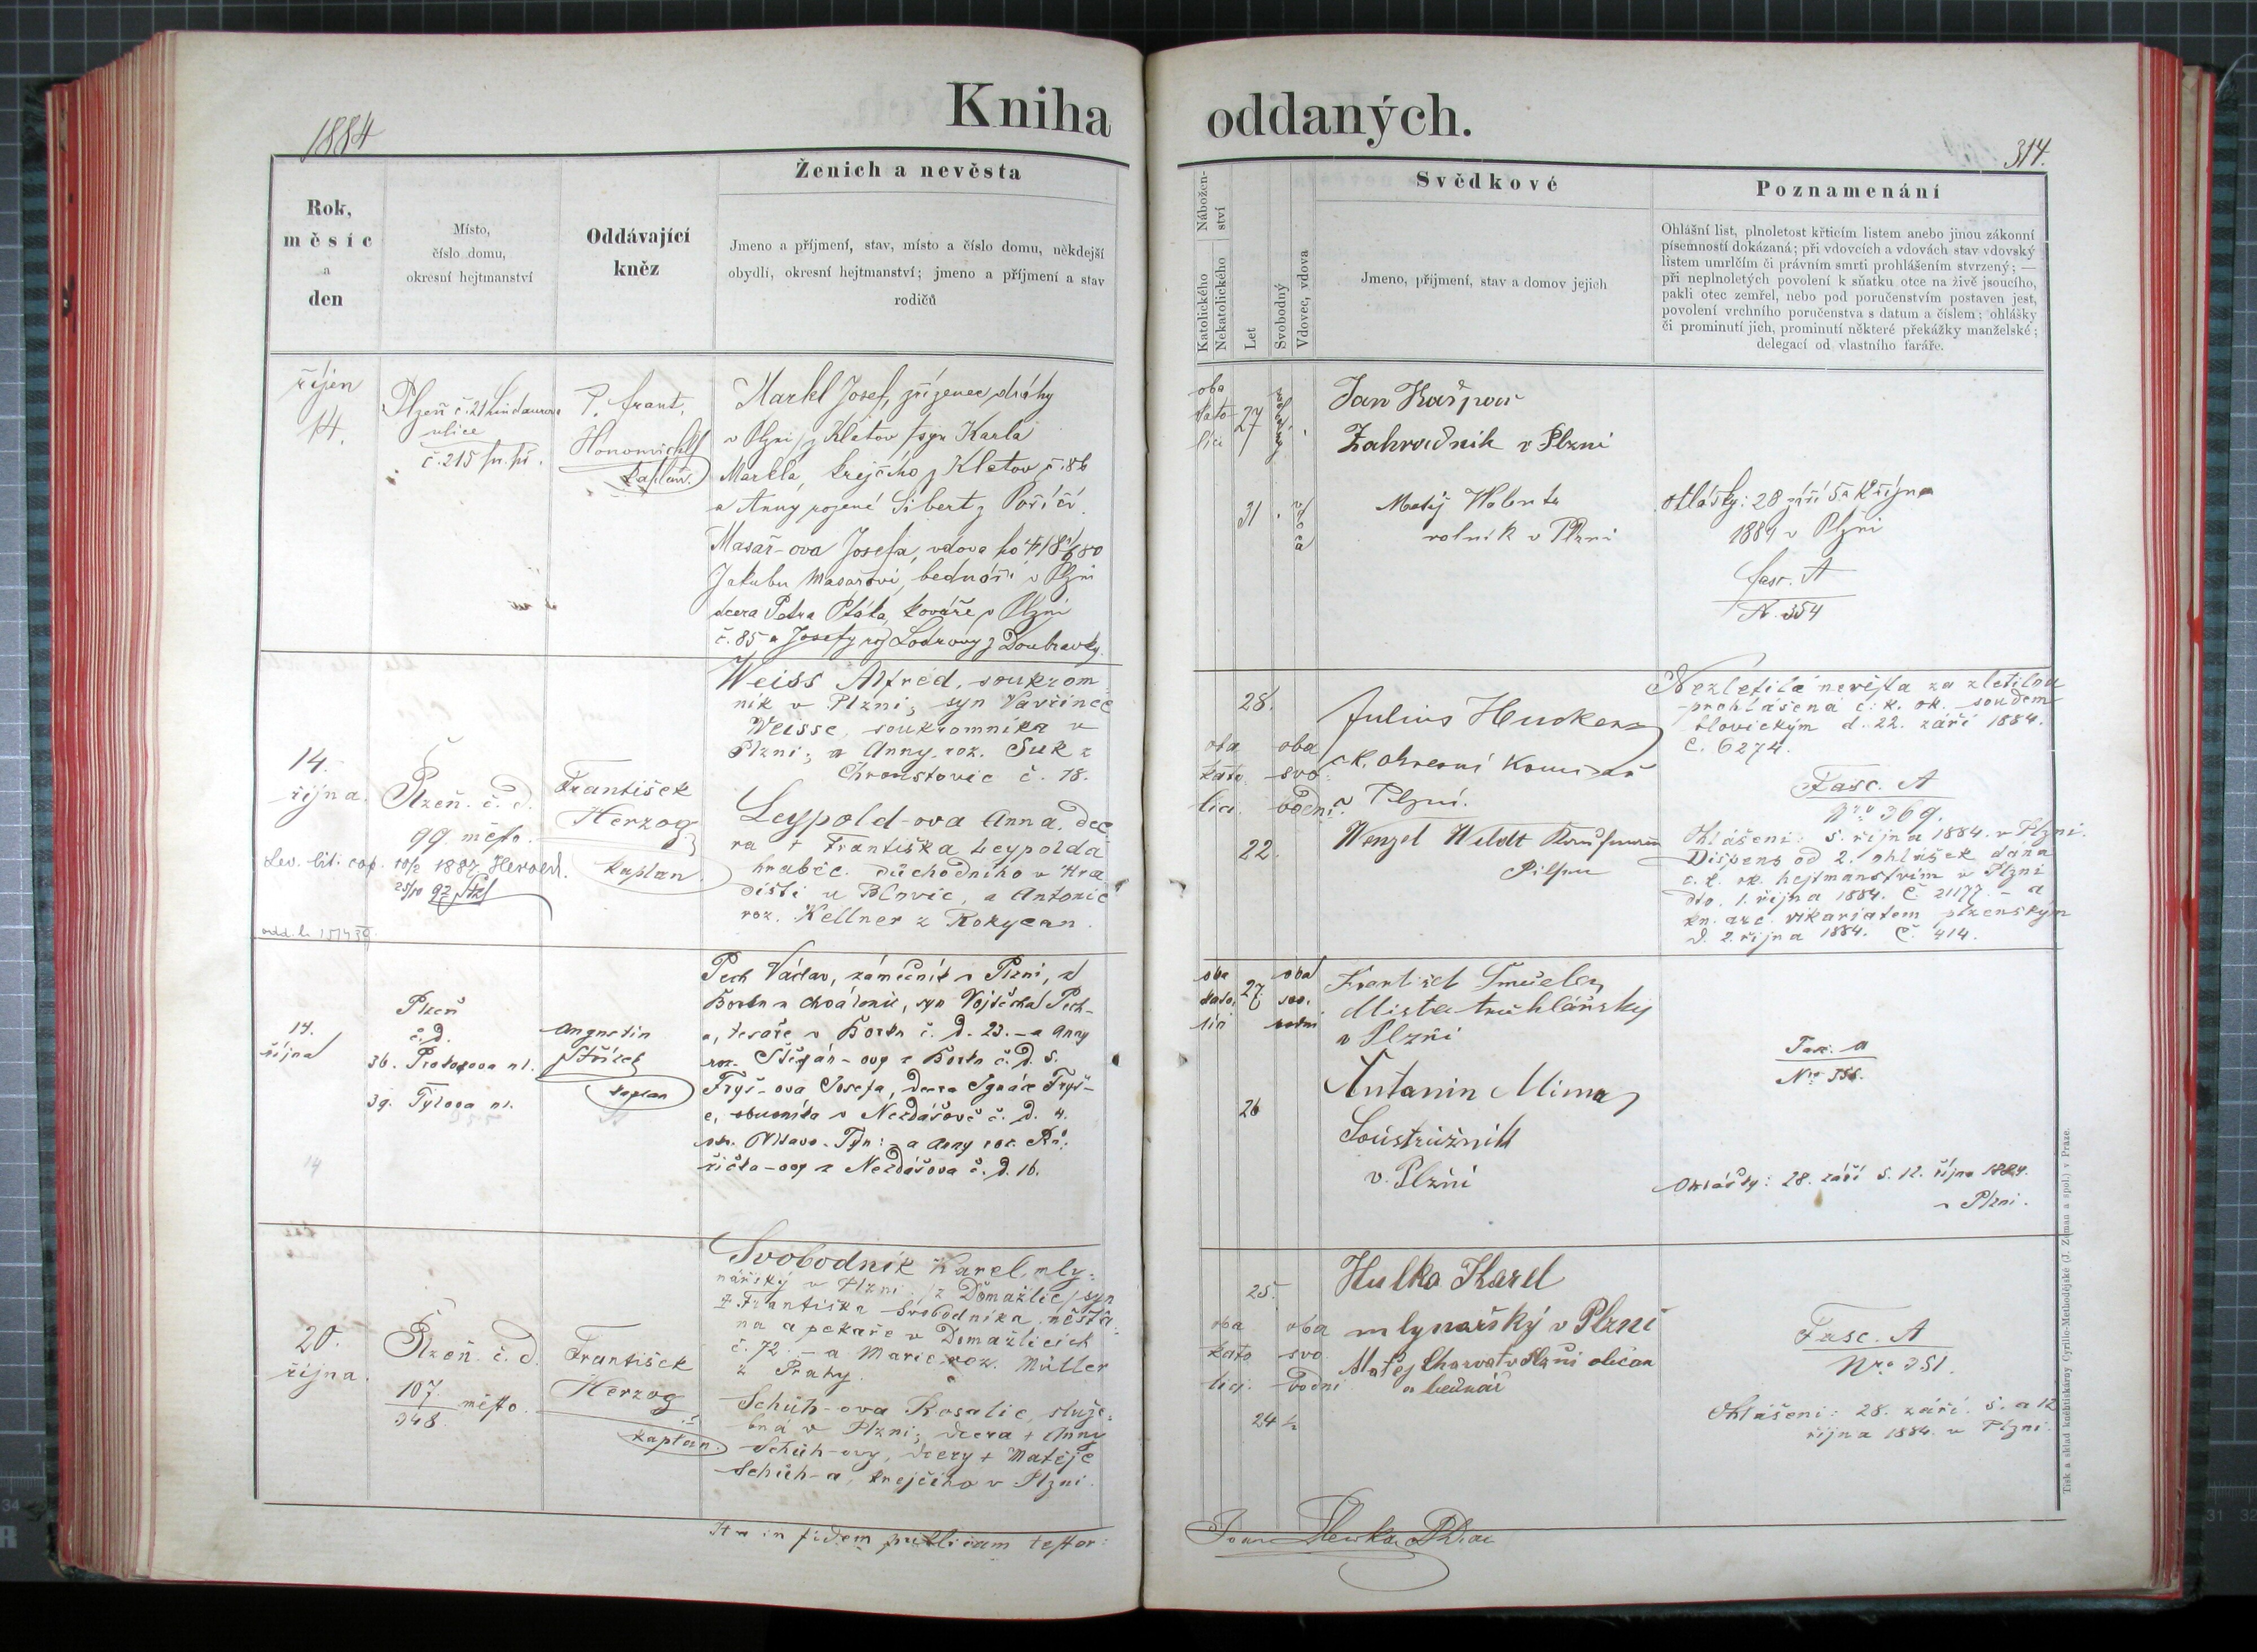 1884
Kniha oddaných.
314.
Rok,
měsíc
a
den
Místo,
číslo domu,
okresní hejtmanství
Oddávající
kněz
Ženich a nevěsta
Jmeno a příjmení, stav, místo a číslo domu, někdejší
obydlí, okresní hejtmanství; jmeno a příjmení a stav
rodičů
Nábožen-
ství
Katolického
Nekatolického
Let
Svobodný
Vdovec, vdova
Svědkové
Jmeno, příjmení, stav a domov jejich
Poznamenání
Ohlášní list, plnoletost křticím listem anebo jinou zákonní
písemností dokázaná; při vdovcích a vdovách stav vdovský
listem umrlčím či právním smrti prohlášením stvrzený; —
při neplnoletých povolení k sňatku otce na živě jsoucího,
pakli otec zemřel, nebo pod poručenstvím postaven jest,
povolení vrchního poručenstva s datum a číslem; ohlášky
či prominutí jich, prominutí některé překážky manželské;
delegací od vlastního faráře.
říjen
14.
Plzeň č. 21
ulice
č. 215
P. Frant.
Honomichl
kaplan.
Markl Josef, zřízenec dráhy
v Plzni z Klatov syn Karla
Markla, krejčího z Klatov č. 86
a Anny rozené Sibert z Poříčí.
Masař-ova Josefa, vdova po
Jakubu Masařovi, bednáři v Plzni
dcera Petra Ptáka, kováře v Plzni
č. 85 a Josefy roz Lodrovy z Doubravky.
oba
kato
líci
27
31
Jan Kašpar
Zahradník v Plzni
Matěj
rolník v Plzni
Ohlášky: 28 září 5 a 12 října
1884 v Plzni
fasc. A
N. 354
14.
října.
Plzeň. č. d.
99 město.
František
Herzog
kaplan
Weiss Alfred, soukrom
ník v Plzni; syn Vavřince
Weisse, soukromníka v
Plzni; a Anny, roz. Suk z
Chroustovic č. 78.
Leypold-ova Anna, dce
ra + Františka Leypolda
hraběc. důchodního v Hra
dišti u Blovic, a Antonie
roz. Kellner z Rokycan.
28.
oba
kato
líci.
oba
svo
bodni
22.
Julius
c.k. okresní komisař
v Plzni.
Wenzel Weldt Kaufmann
Pilsen
Nezletilá nevěsta za zletilou
prohlášena c. k. ok. soudem
blovickým d. 22. září 1884.
č. 6274.
Fasc. A
Nro 369.
Ohlášeni: 5. října 1884. v Plzni.
Dispens od 2. ohlášek dána
c. k. ok. hejtmanstvím v Plzni
dto. 1. října 1884. Č 21177. - a
kn. arc. vikariatem plzenským
d. 2. října 1884. Č. 414.
14.
října
Plzeň
č. d.
36. Prokopova ul.
39. Tylova ul.
Augustin
Střízek
kaplan
Pech Václav, zámečník v Plzni, z
Borku a Chválenic, syn Vojtěcha Pech-
a, tesaře v Borku č. d. 23. - a Anny
roz. Štěpán-ovy z Borku č. d. 5.
Fryš-ova Josefa, dcera Ignáce Fryš-
e, obuvníka v Nezdášově č. d. 4.
okr. Vltavo-Týn: a Anny roz. Rů-
žička-ovy z Nezdášova č. d. 16.
oba
kato
líci
27
oba
svo.
bodni
26
František Smučeler
Mistr truhlářský
v Plzni
Antonin Mima
Soustružník
v. Plzni
Fasc. A
Nro 356.
Ohlášky: 28. září 5. 12. října 1884.
v Plzni.
20.
října.
Plzeň. č. d.
107
348 město.
František
Herzog
kaplan.
Svobodník Karel, mly-
nářský v Plzni, /z Domažlic/ syn
+ Františka Svobodníka, měšťa-
na a pekaře v Domažlicích
č. 72. - a Marie, roz. Müller
z Prahy.
Schüh-ova Rosalie, služe-
bná v Plzni; dcera + Anny
Schüh-ovy, dcery + Matěje
Schüh-a, krejčího v Plzni.
25.
oba
kato
líci.
oba
svo
bodni
24 ½
Hulka Karel
mlynařský v Plzni
Matěj Charvat v Plzni občan
a bednář
Fasc. A
Nro 351.
Ohlášeni: 28. září. 5. a 12
října 1884. v Plzni.
Ita in fidem publicam testor:
Tisk a sklad knihtiskárny Cyrillo-Methodějské (J. Zeman a spol.) v Praze.